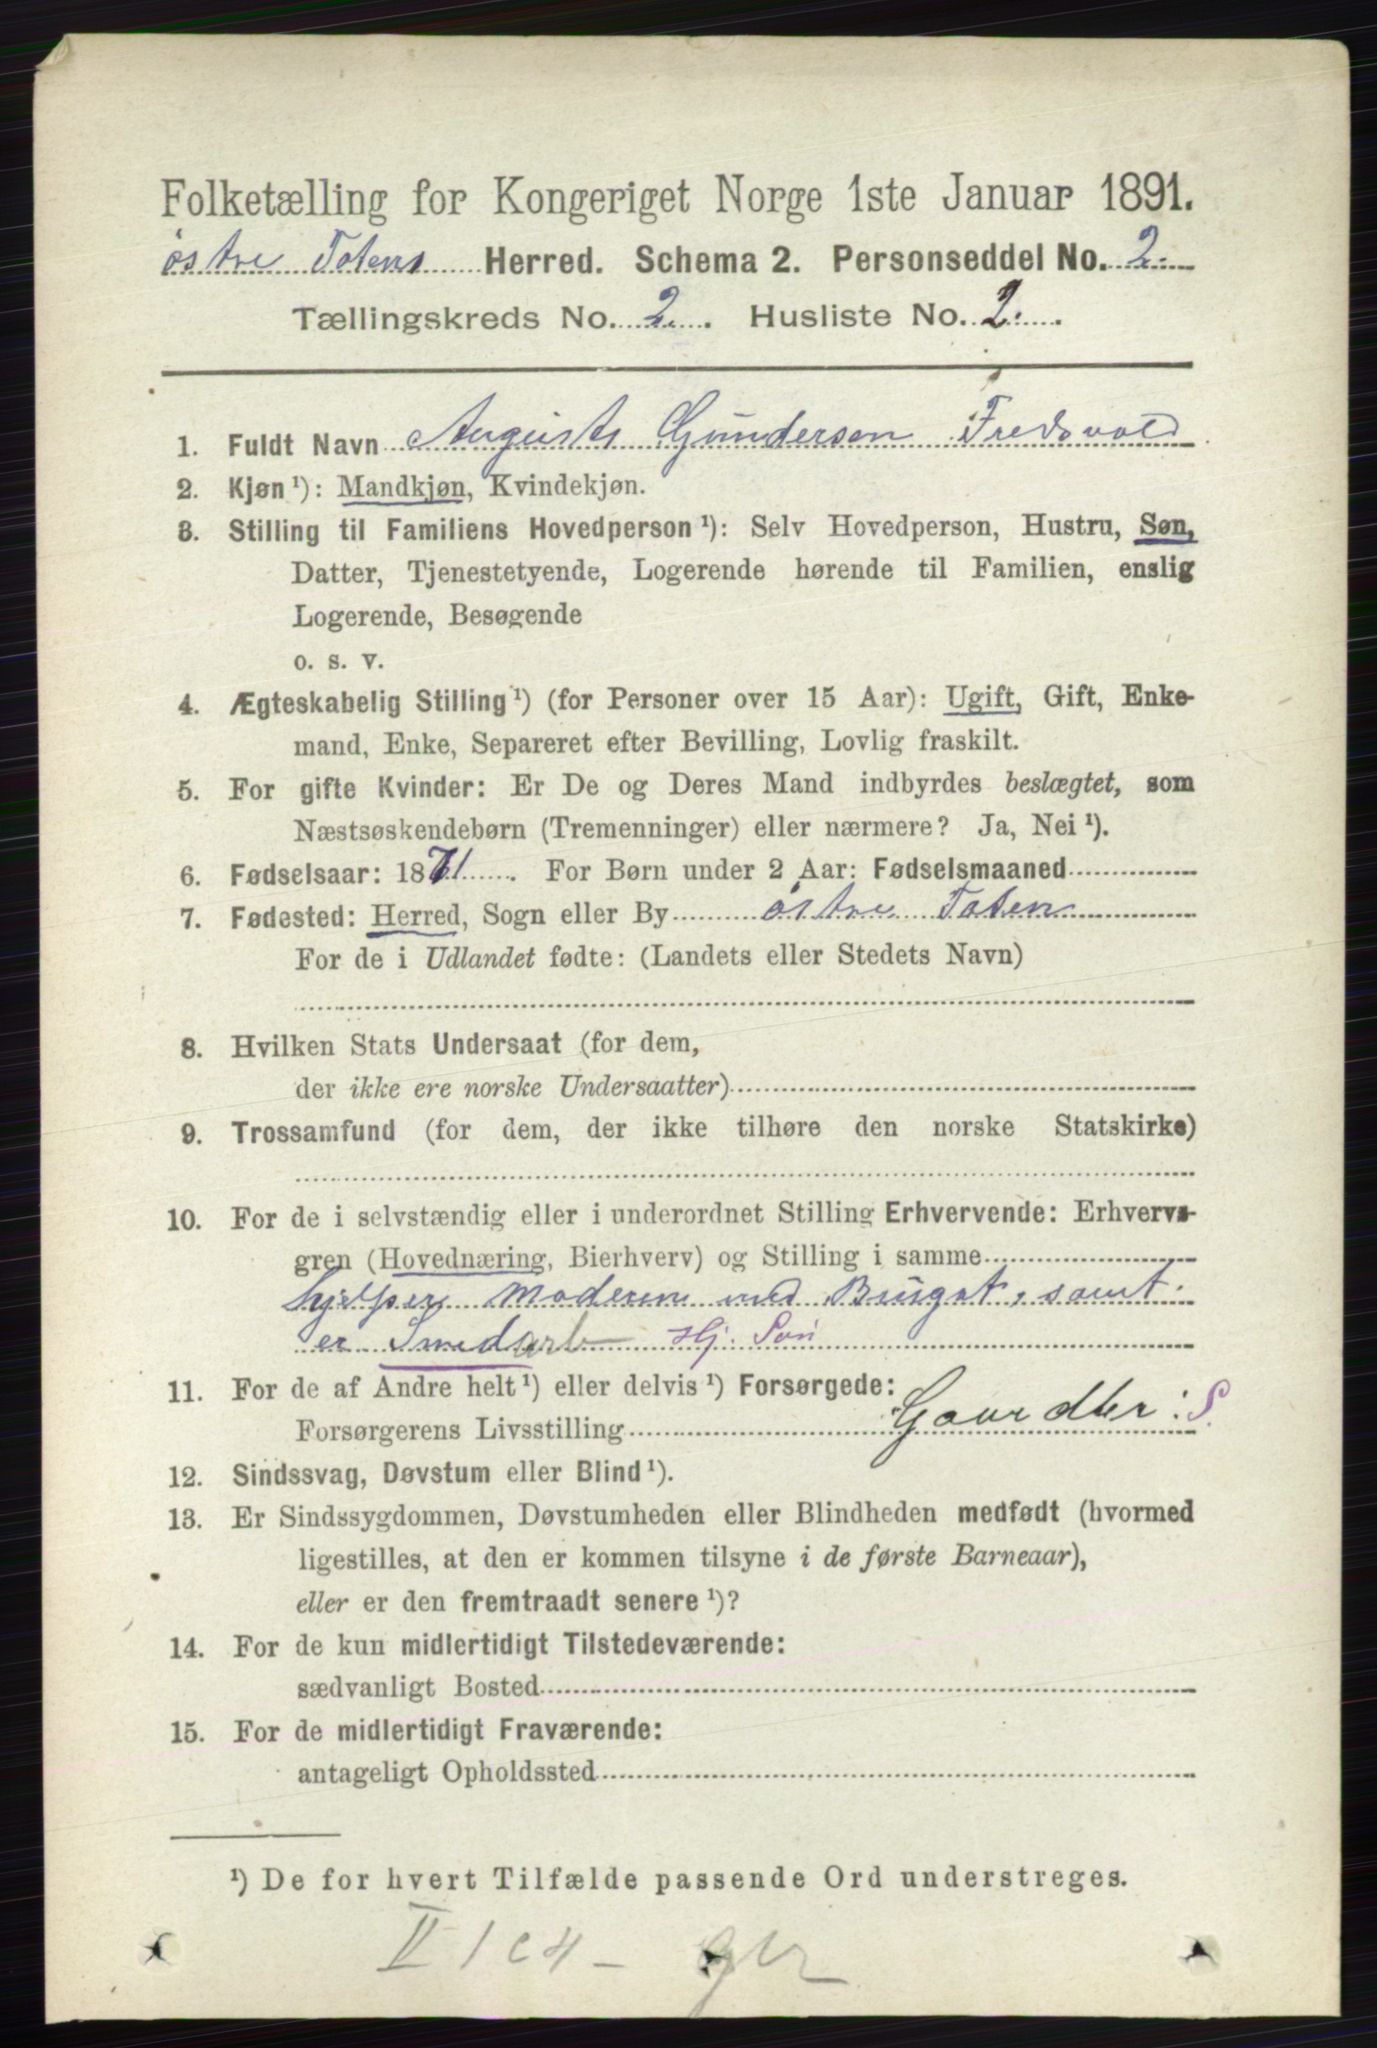 Folketælling for Kongeriget Norge 1ste Januar 1891.
østre Totens Herred. Schema 2. Personseddel No. 2.
Tællingskreds No. 2. Husliste No. 2.
1. Fuldt Navn August Gundersen Fredsvold
2. Kjøn ¹): Mandkjøn, Kvindekjøn.
3. Stilling til Familiens Hovedperson ¹): Selv Hovedperson, Hustru, Søn,
Datter, Tjenestetyende, Logerende hørende til Familien, enslig
Logerende, Besøgende
o. s. v.
4. Ægteskabelig Stilling ¹) (for Personer over 15 Aar): Ugift, Gift, Enke-
mand, Enke, Separeret efter Bevilling, Lovlig fraskilt.
5. For gifte Kvinder: Er De og Deres Mand indbyrdes beslægtet, som
Næstsøskendebørn (Tremenninger) eller nærmere? Ja, Nei ¹).
6. Fødselsaar: 1871. For Børn under 2 Aar: Fødselsmaaned
7. Fødested: Herred, Sogn eller By østre Toten
For de i Udlandet fødte: (Landets eller Stedets Navn)
8. Hvilken Stats Undersaat (for dem,
der ikke ere norske Undersaatter)
9. Trossamfund (for dem, der ikke tilhøre den norske Statskirke)
10. For de i selvstændig eller i underordnet Stilling Erhvervende: Erhvervs-
gren (Hovednæring, Bierhverv) og Stilling i samme
hjelper Moderen med Bruget, samt
er Smedarb Hj. Søn
11. For de af Andre helt ¹) eller delvis ¹) Forsørgede:
Forsørgerens Livsstilling Gaardbr: S.
12. Sindssvag, Døvstum eller Blind ¹).
13. Er Sindssygdommen, Døvstumheden eller Blindheden medfødt (hvormed
ligestilles, at den er kommen tilsyne i de første Barneaar),
eller er den fremtraadt senere ¹)?
14. For de kun midlertidigt Tilstedeværende:
sædvanligt Bosted
15. For de midlertidigt Fraværende:
antageligt Opholdssted
¹) De for hvert Tilfælde passende Ord understreges.